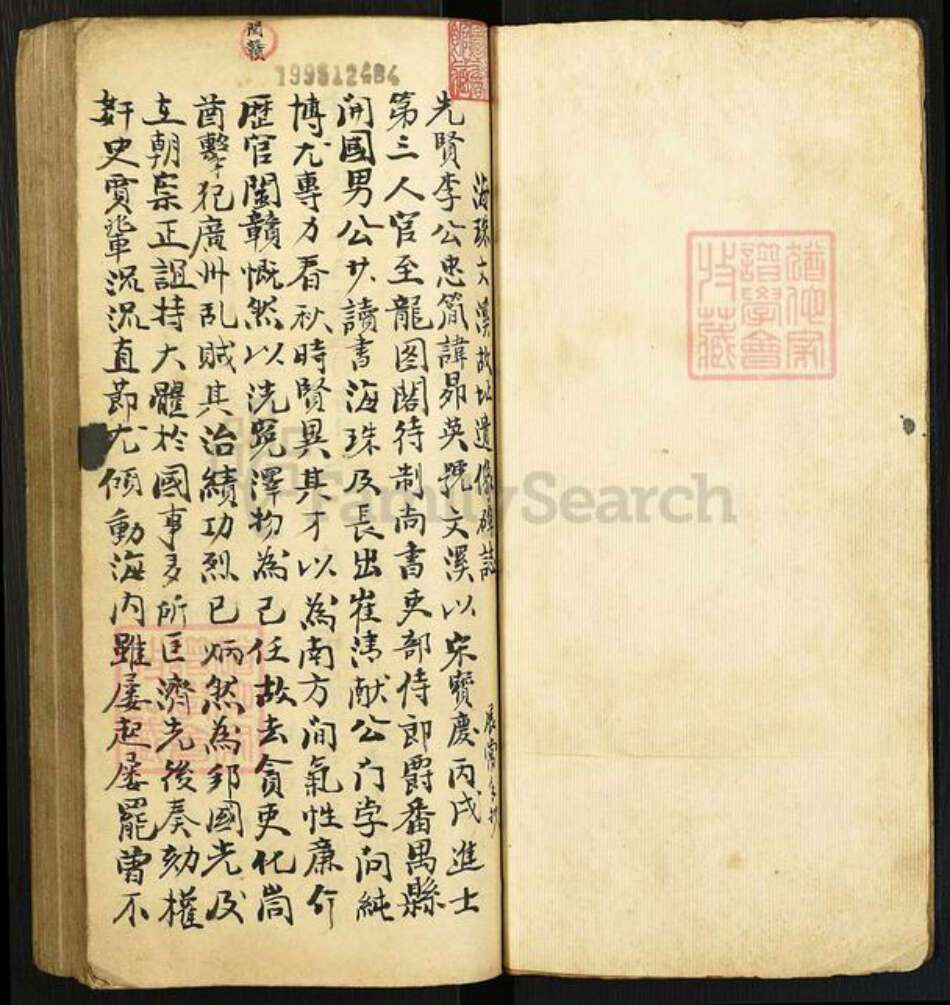 海珠文溪故址遺像碑誌
先賢李公忠簡諱昴英號文溪以宋寶慶丙戌進士
第三人官至龍图閣待制尚書吏部侍郎爵番禺縣
開國男公少讀書海珠及長出崔清献公门学问純
博尤專力春秋時賢異其才以為南方间氣性廉介
歷官閩贛慨然以洗冤澤物為己任故去貪吏化嵩
酋擊犯廣州乱賊其治績功烈已炳然為邦國光及
立朝宗正誼持大體於國事多所匡濟先後奏劾權
奸史賈輩沉沉直節尤傾動海内雖屡起屡罷曽不
閩贛
199512484
譜學會
收藏
FamilySearch